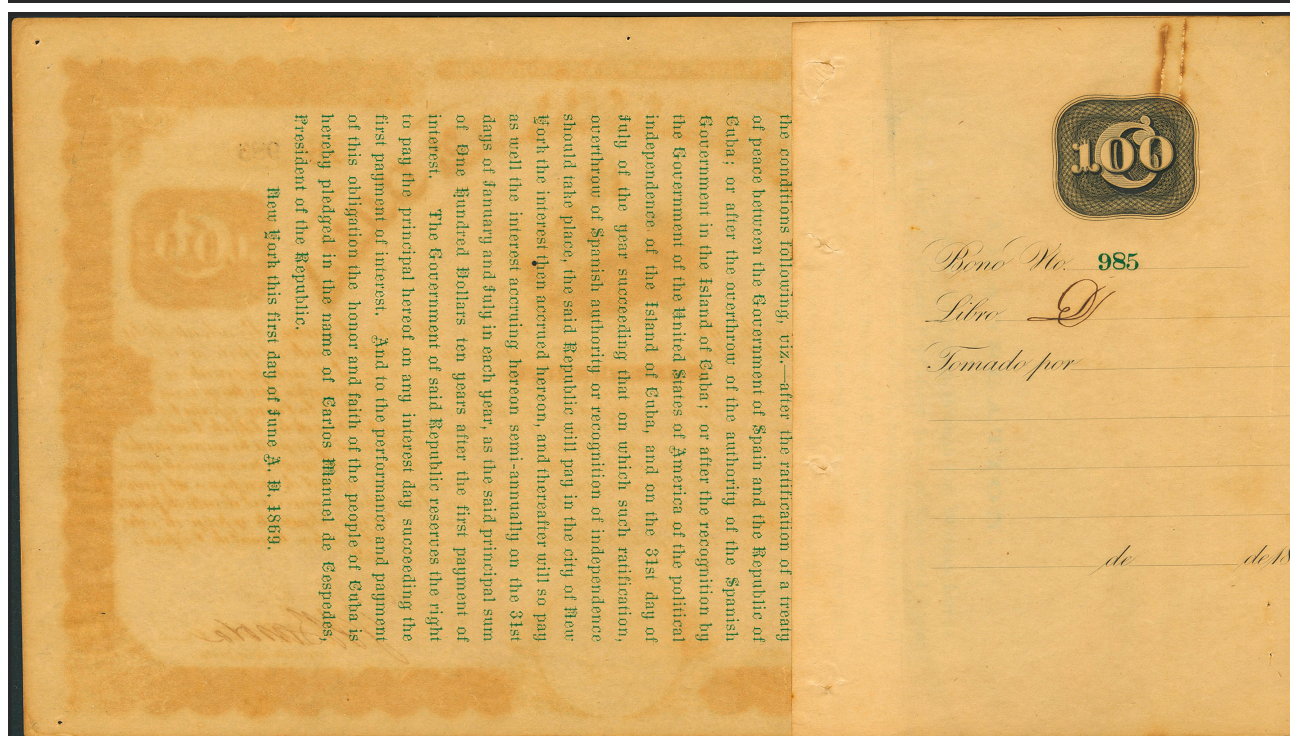 the conditions following, viz.—after the ratification of a treaty
of peace between the Government of Spain and the Republic of
Cuba; or after the overthrow of the authority of the Spanish
Government in the Island of Cuba; or after the recognition by
the Government of the United States of America of the political
independence of the Island of Cuba, and on the 31st day of
July of the year succeeding that on which such ratification,
overthrow of Spanish authority or recognition of independence
should take place, the said Republic will pay in the city of New
York the interest then accrued hereon, and thereafter will so pay
as well the interest accruing hereon semi-annually on the 31st
days of January and July in each year, as the said principal sum
of One Hundred Dollars ten years after the first payment of
interest. The Government of said Republic reserves the right
to pay the principal hereof on any interest day succeeding the
first payment of interest. And to the performance and payment
of this obligation the honor and faith of the people of Cuba is
hereby pledged in the name of Carlos Manuel de Cespedes,
President of the Republic.
New York this first day of June A. D. 1869.
100
Bono No. 985
Libro D
Tomado por
de de 18